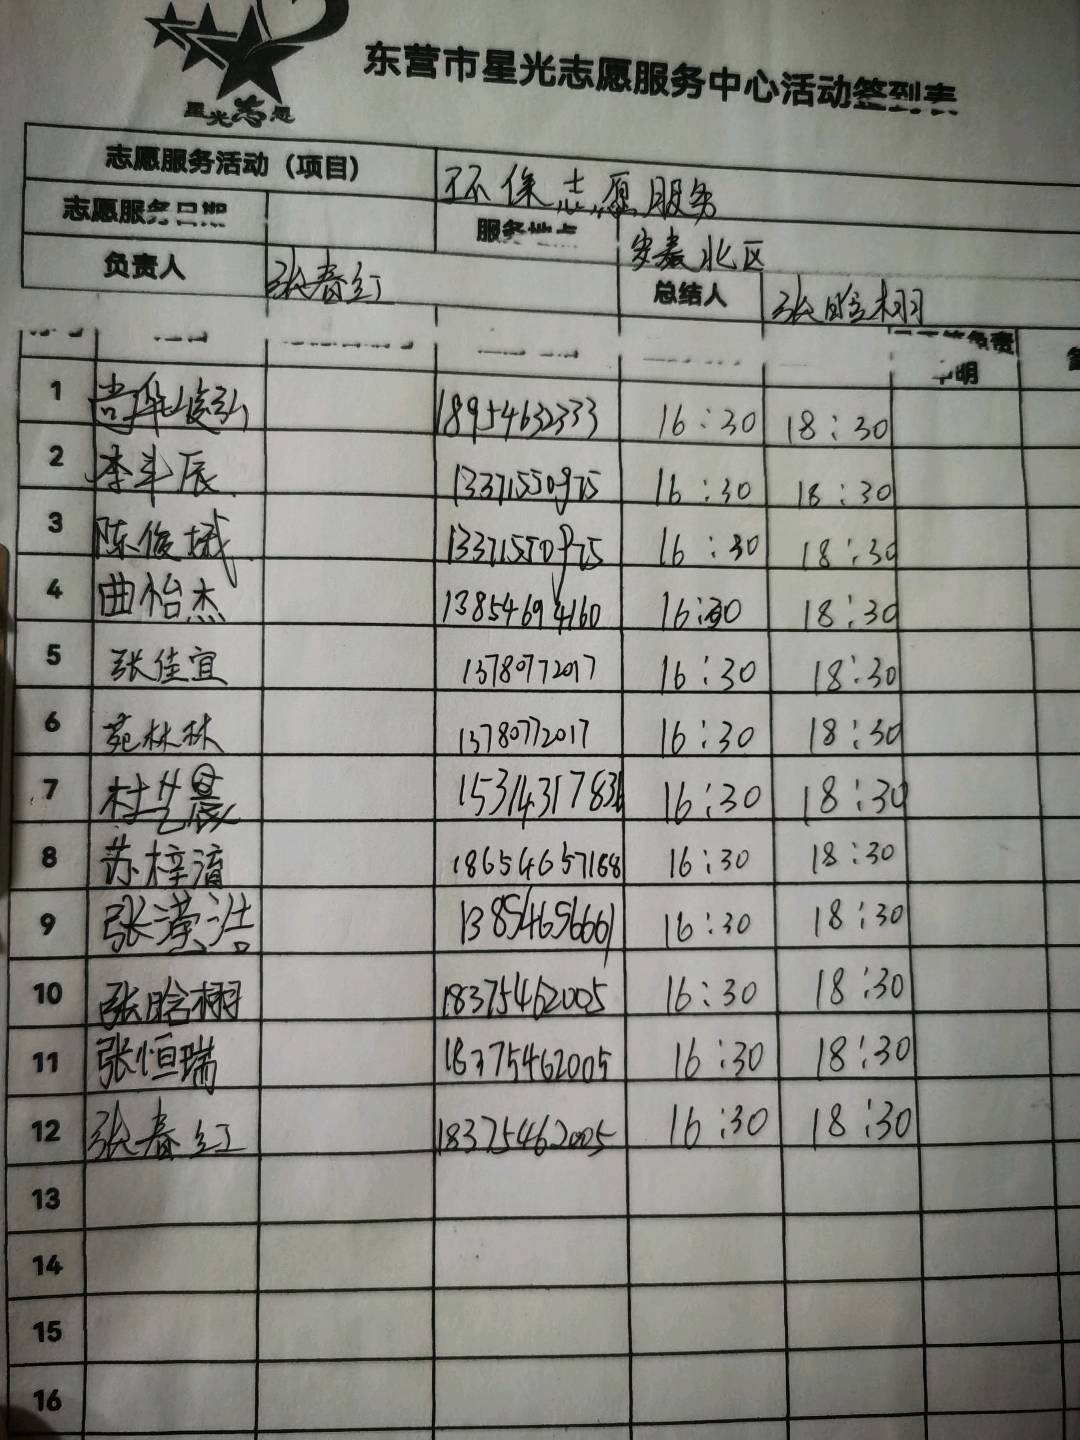 星光志愿
东营市星光志愿服务中心活动签到表
志愿服务活动（项目） 环保志愿服务
志愿服务日期 服务地点 安泰北区
负责人 张春红 总结人 张晗栩
1 18954632333 16:30 18:30
2 李半辰 13371550975 16:30 18:30
3 陈俊城 13371550975 16:30 18:30
4 曲怡杰 13854694160 16:30 18:30
5 张佳宜 13780772017 16:30 18:30
6 苑林林 13780772017 16:30 18:30
7 杜艺晨 15314317836 16:30 18:30
8 苏梓清 18654657168 16:30 18:30
9 张潆洁 13854656661 16:30 18:30
10 张晗栩 18375462005 16:30 18:30
11 张恒瑞 18375462005 16:30 18:30
12 张春红 18375462005 16:30 18:30
13
14
15
16